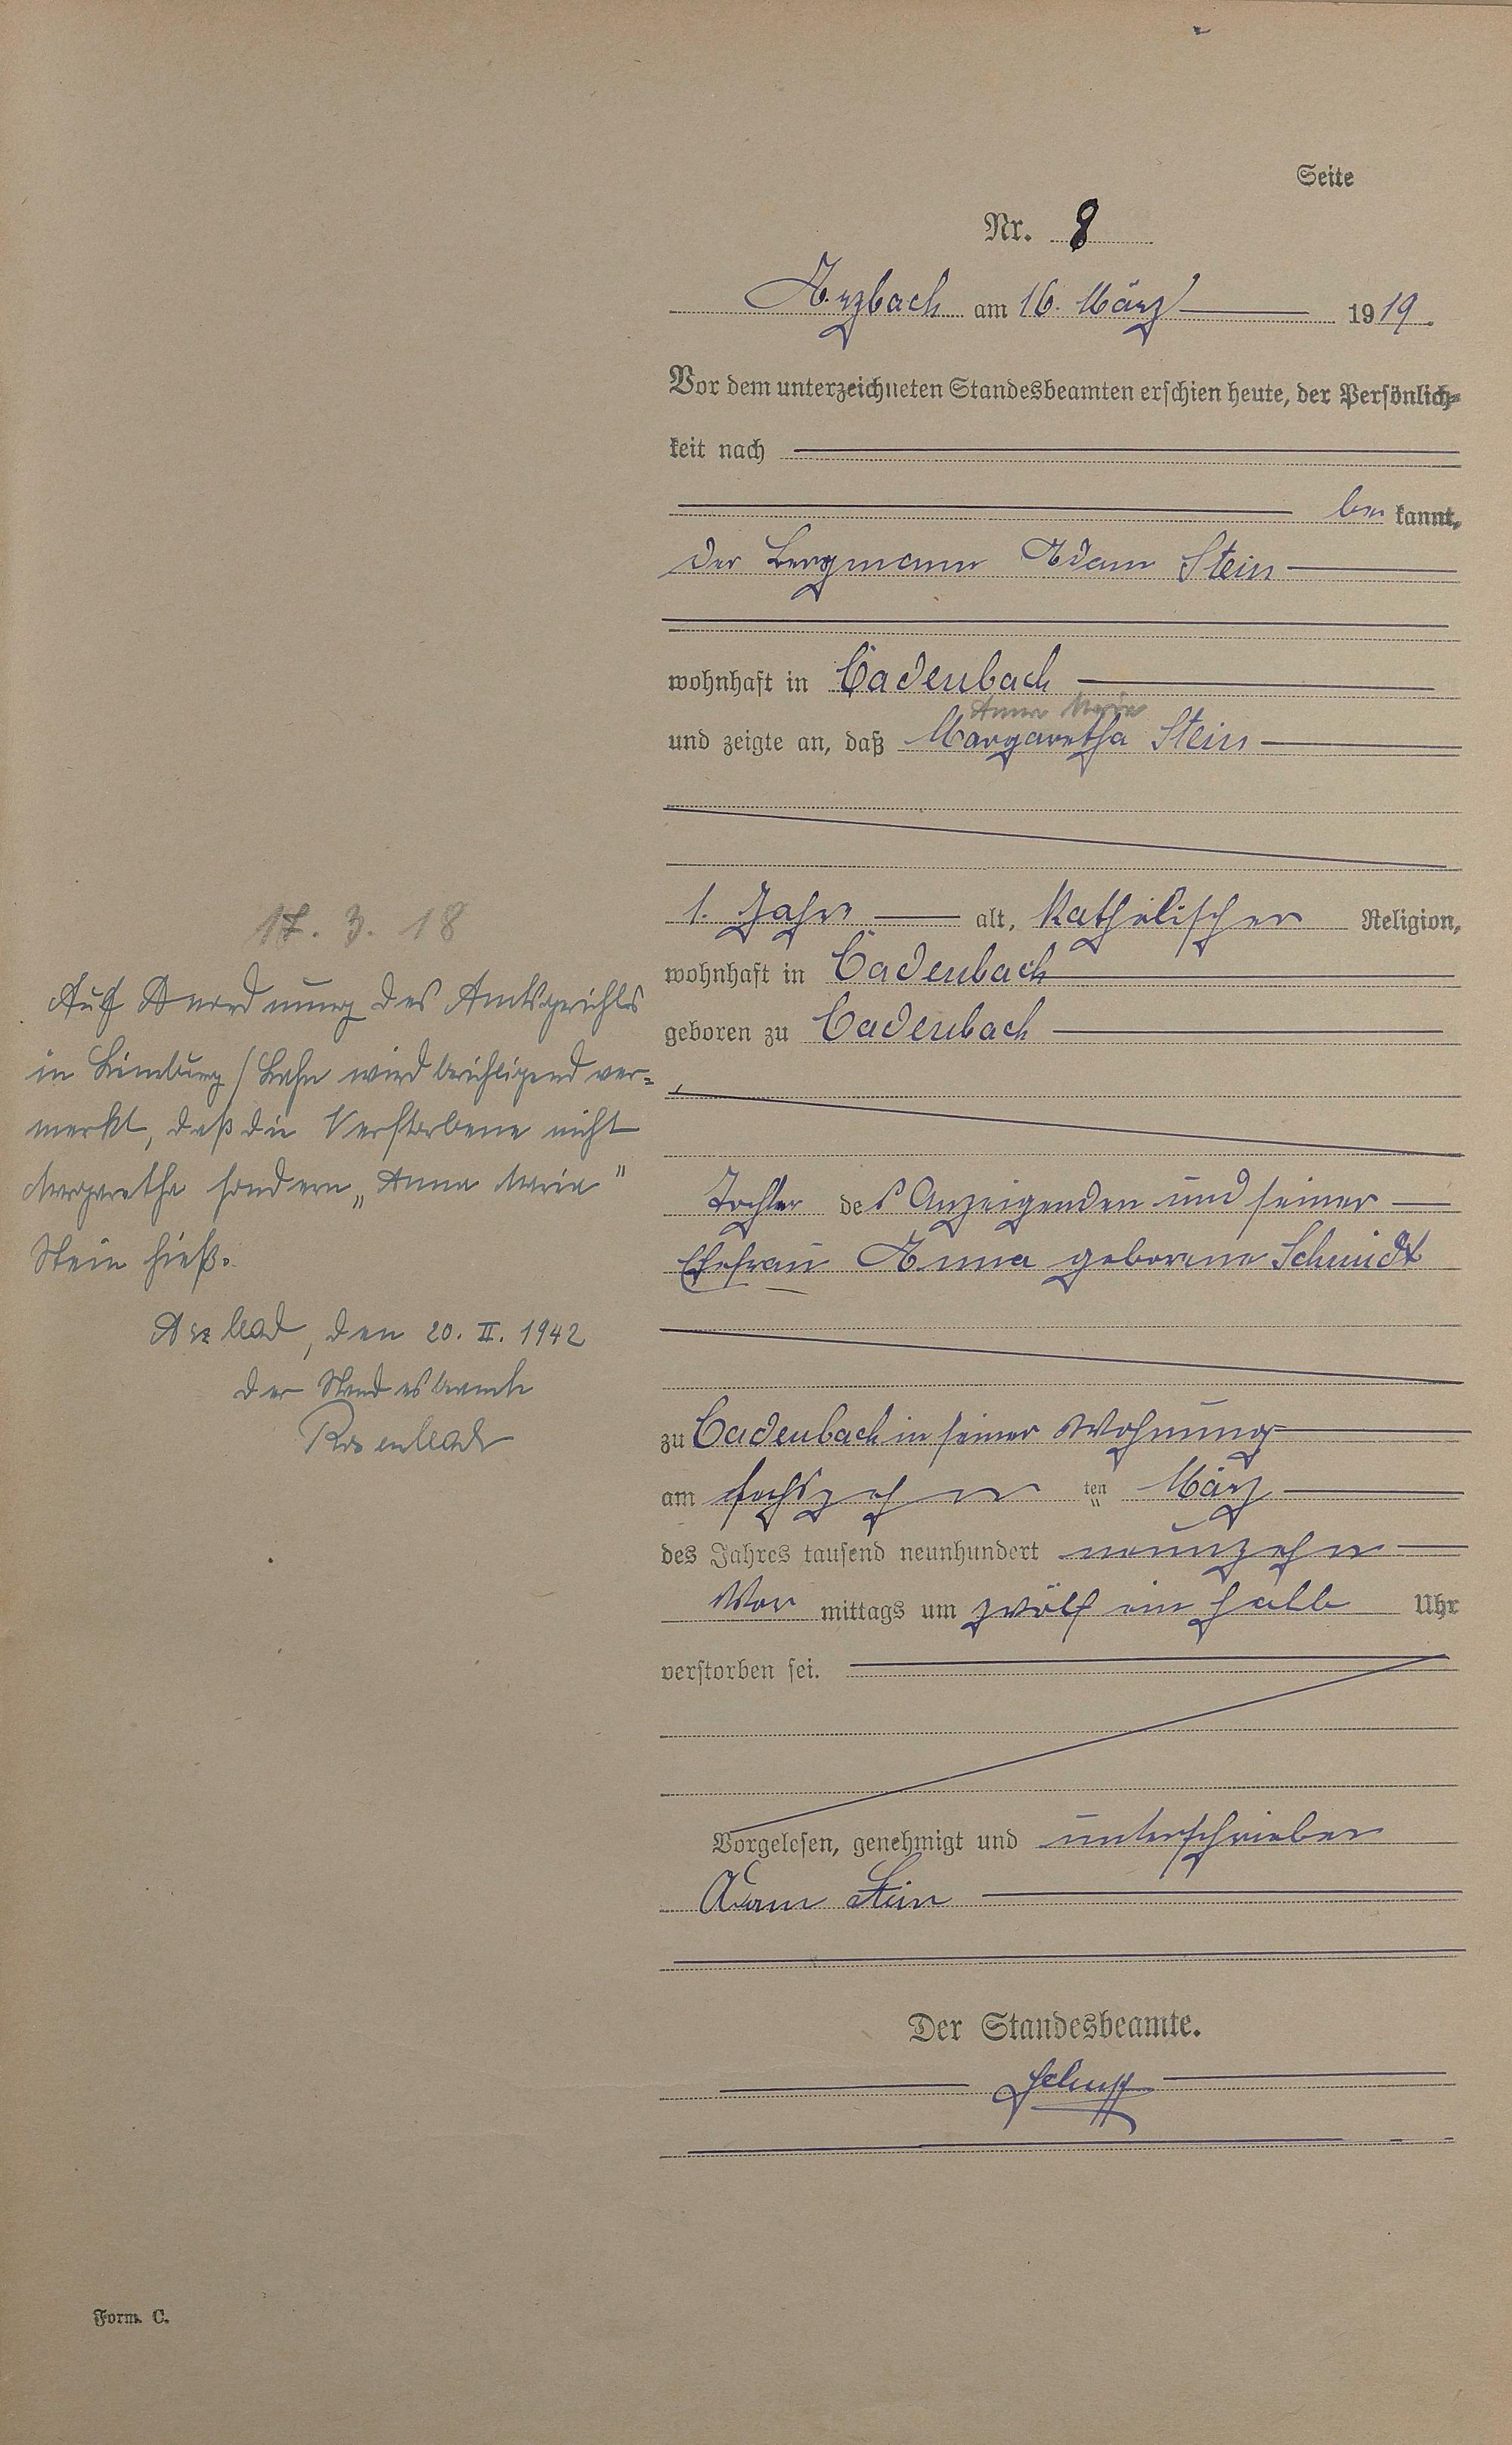 Seite
Nr. 8
Arzbach am 16. März 1919.
Vor dem unterzeichneten Standesbeamten erschien heute, der Persönlich-
keit nach
be kannt,
der Bergmann Adam Stein
wohnhaft in Cadenbach
Anna Maria
und zeigte an, daß Margaretha Stein
1. Jahr alt, katholischer Religion,
wohnhaft in Cadenbach
geboren zu Cadenbach
Tochter des Anzeigenden und seiner
Ehefrau Anna geborene Schmidt
zu Cadenbach in seiner Wohnung
am sechszehn ten März
des Jahres tausend neunhundert neunzehn
Vor mittags um zwölf ein halb Uhr
verstorben sei.
Vorgelesen, genehmigt und unterschrieben
Adam Stein
Der Standesbeamte.
17. 3. 18
Auf Anordnung des Amtsgerichts
in Limburg / Lahn wird berichtigend ver=
merkt, daß die Verstorbene nicht
Margaretha sondern „Anna Maria"
Stein hieß.
Arzbach, den 20. II. 1942
Der Standesbeamte
Form. C.